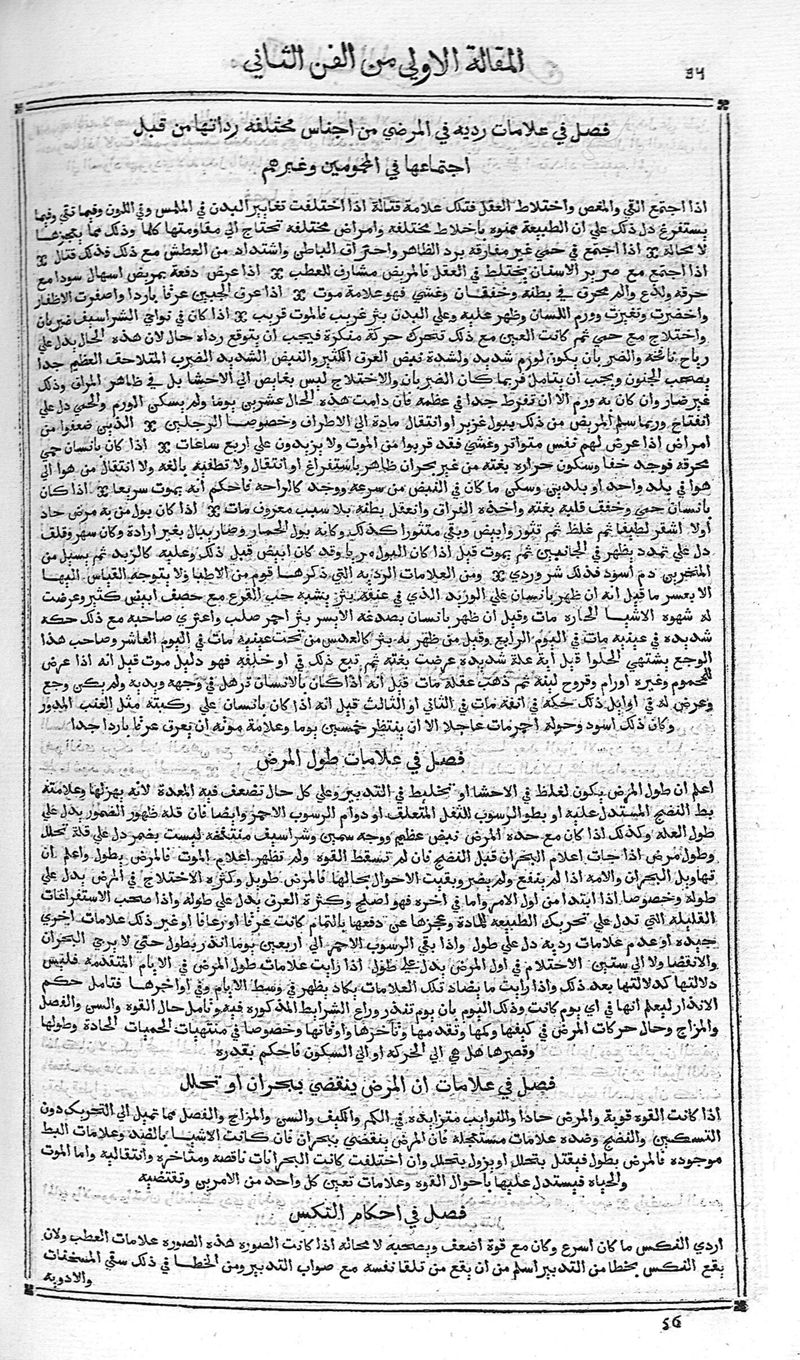 المقالة الاولي من الفن الثاني
فصل في علامات رديه في المرضي من اجناس مختلفه رداتها من قبل
اجتماعها في المحمومين وغيرهم
اذا اجتمع القي والمغص واختلاط العقل فتلك علامة قتالة اذا اختلفت تغايير البدن في الملمس وفي اللون وفيما تقي وفيما
يستفرغ دل ذلك علي ان الطبيعة ممنوه باخلاط مختلفه وامراض مختلفه تحتاج الي مقاومتها كلها وذلك مما يعجزها
لا محالة اذا اجتمع في حمي غير مفارقه برد الظاهر واحتراق الباطن واشتداد من العطش مع ذلك فذلك قتال
اذا اجتمع مع صرير الاسنان تختلط في العقل فالمريض مشارف للعطب اذا عرض دفعة بمريض اسهال سودا مع
حرقه ولذع والم محرق في بطنه وخفقان وغشي فهو علامة موت اذا عرق الجبين عرقا باردا واصفرت الاظفار
واخضرت وتغيرت وورم اللسان وظهر عليه وعلي البدن بثر غريب فالموت قريب اذا كان في نواحي الشراسيف ضربان
واختلاج مع حمي ثم كانت العين مع ذلك تتحرك حركة منكرة فيجب ان يتوقع رداه حال لان هذه الحال يدل علي
رياح نافخة والضربان يكون لورم شديد ولشدة نبض العرق الكبير والنبض الشديد الضرب المتلاحف العظيم جدا
يصحب الجنون ويجب ان يتامل فربما كان الضربان والاختلاج ليس بغايص الي الاحشا بل في ظاهر المراق وذلك
غير ضار وان كان به ورم الا ان تفرط جدا في عظمه فان دامت هذه الحال عشرين يوما ولم يسكن الورم والحمي دل علي
انفتاح وربما سلم المريض من ذلك ببول غزير او انتقال مادة الي الاطراف وخصوصا الرجلين الذين ضعفوا من
امراض اذا عرض لهم نفس متواتر وغشي فقد قربوا من الموت ولا يزيدون علي اربع ساعات اذا كان بانسان حمي
محرقه فوجد خفا وسكون حراره بغته من غير بحران ظاهر باستفراغ او انتقال ولا تطفيه بالغه ولا انتقال من هوا الي
هوا في بلد واحد او بلدين وسكن ما كان في النبض من سرعه ووجد كالراحه فاحكم انه يموت سريعا اذا كان
بانسان حمي وخفق قلبه بغته واخذه الفواق وانعقل بطنه بلا سبب معروف مات اذا كان بول من به مرض حاد
اولا اشقر لطيفا ثم غلظ ثم تثور وابيض وبقي متثورا كذلك وكانه بول الحمار وصار يبال بغير ارادة وكان سهر وقلق
دل علي تمدد يظهر في الجانبين ثم يموت قبل اذا كان البول مربط وقد كان ابيض قبل ذلك وعليه كالزبد ثم يسيل من
المنخرين دم اسود فذلك شر وردي ومن العلامات الرديه التي ذكرها قوم من الاطبا ولا يتوجه القياس اليها
الا بعسر ما قيل انه ان ظهر بانسان علي الوريد الذي في عنقه بثر يشبه حب القرع مع حصف ابيض كثير وعرضت
له شهوه الاشيا الحاره مات وقيل ان ظهر بانسان بصدغه الايسر بثر احمر صلب واعتري صاحبه مع ذلك حكه
شديده في عينيه مات في اليوم الرابع وقيل من ظهر به بثر كالعدس من تحت عينيه مات في اليوم العاشر وصاحب هذا
الوجع يشتهي الحلوا قيل اية علة شديده عرضت بغته ثم تبع ذلك في او خلفه فهو دليل موت قيل انه اذا عرض
للمحموم وغيره اورام وقروح لينه ثم ذهب عقله مات قيل انه اذا كان بالانسان ترهل في وجهه وبدنه ولم يكن وجع
وعرض له في اوايل ذلك حكه في انفه مات في الثاني او الثالث قيل انه اذا كان بانسان علي ركبتيه مثل العنب المدور
وكان ذلك اسود وحوله احمر مات عاجلا الا ان ينتظر خمسين يوما وعلامة موته ان يعرق عرقا باردا جدا
فصل في علامات طول المرض
اعلم ان طول المرض يكون لغلظ في الاحشا او تخليط في التدبير وعلي كل حال تضعف فيه المعدة لانه يهزلها وعلامته
بط النضج المستدل عليه او بطو الرسوب الثفل المتعلق او دوام الرسوب الاحمر وايضا فان قله ظهور الضمور يدل علي
طول العله وكذلك اذا كان مع حده المرض نبض عظيم ووجه سمين وشراسيف منتفخه ليست تضمر دل علي قلة تحلل
وطول مرض اذا جات اعلام البحران قبل النضج فان لم تسقط القوه ولم تظهر اعلام الموت فالمرض يطول واعلم ان
تهاويل البحران والامه اذا لم ينفع ولم يضر وبقيت الاحوال بحالها فالمرض طويل وكثرة الاختلاج في المرض يدل علي
طوله وخصوصا اذا ابتدا من اول الامر واما في اخره فهو اصلح وكثرة العرق يدل علي طوله واذا صحب الاستفراغات
القليله التي تدل علي تحريك الطبيعه للمادة وعجزها عن دفعها بالتمام كانت عرقا او رعافا او غير ذلك علامات اخري
جيده او عدم علامات رديه دل علي طول واذا بقي الرسوب الاحمر الي اربعين يوما انذر بطول حتي لا يرجي البحران
والانقضا ولا الي ستين الاختلام في اول المرض يدل علي طول اذا رايت علامات طول المرض في الايام المتقدمه فليس
دلالتها كدلالتها بعد ذلك واذا رايت ما يضاد تلك العلامات يكاد يظهر في وسط الايام وفي اواخرها فتامل حكم
الانذار ليعلم انها في اي يوم كانت وذلك اليوم بان يوم تنذر وراع الشرايط المذكوره فيه وتامل حال القوه والسن والفصل
والمزاج وحال حركات المرض في كيفها وكمها وتقدمها وتاخرها واوقاتها وخصوصا في منتهيات الحميات الحادة وطولها
وقصرها هل هي الي الحركه او الي السكون فاحكم بقدره
فصل في علامات ان المرض ينقضي ببحران او تحلل
اذا كانت القوه قوية والمرض حادا والنوايب متزايده في الكم والكيف والسن والمزاج والفصل مما تميل الي التحريك دون
التسكين والنضج وضده علامات مستعجله فان المرض ينقضي ببحران فان كانت الاشيا بالضد وعلامات البط
موجوده فالمرض يطول فيقتل بتحلل او يزول بتحلل وان اختلفت كانت البحرانات ناقصه ومتاخره وانتقاليه واما الموت
والحياه فيستدل عليها باحوال القوه وعلامات تعين كل واحد من الامرين وتقتضيه
فصل في احكام النكس
اردي النكس ما كان اسرع وكان مع قوة اضعف ويصحبه لا محالة اذا كانت الصوره هذه الصوره علامات العطب ولان
يقع النكس بخطا من التدبير اسلم من ان يقع من تلقا نفسه مع صواب التدبير ومن الخطا في ذلك سقي المسخنات
والادويه
56